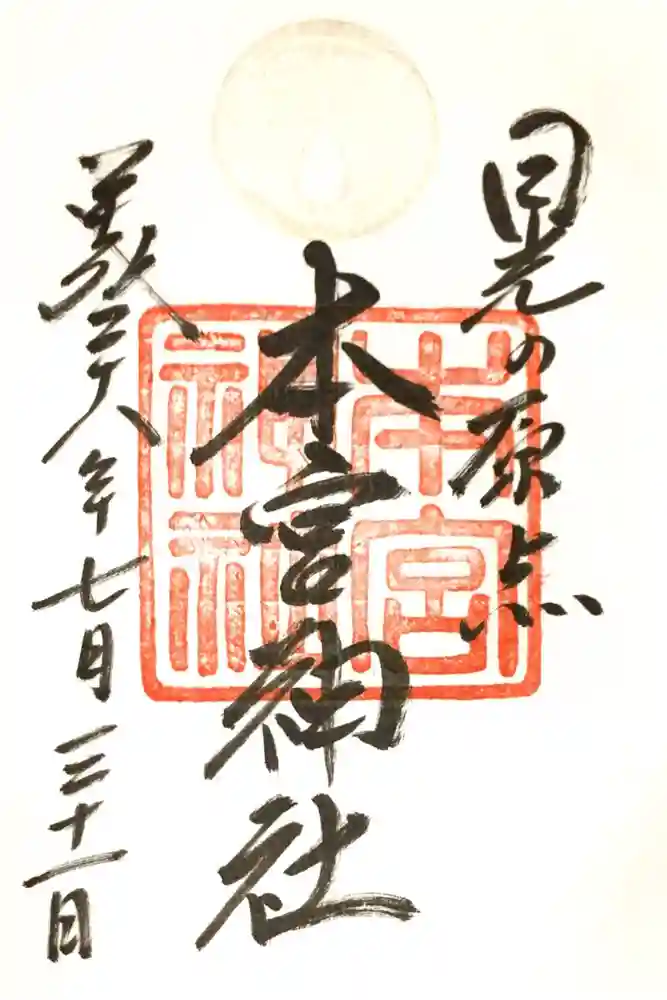 日光の原点
本宮神社
平成二十八年七月三十一日
本宮
神社